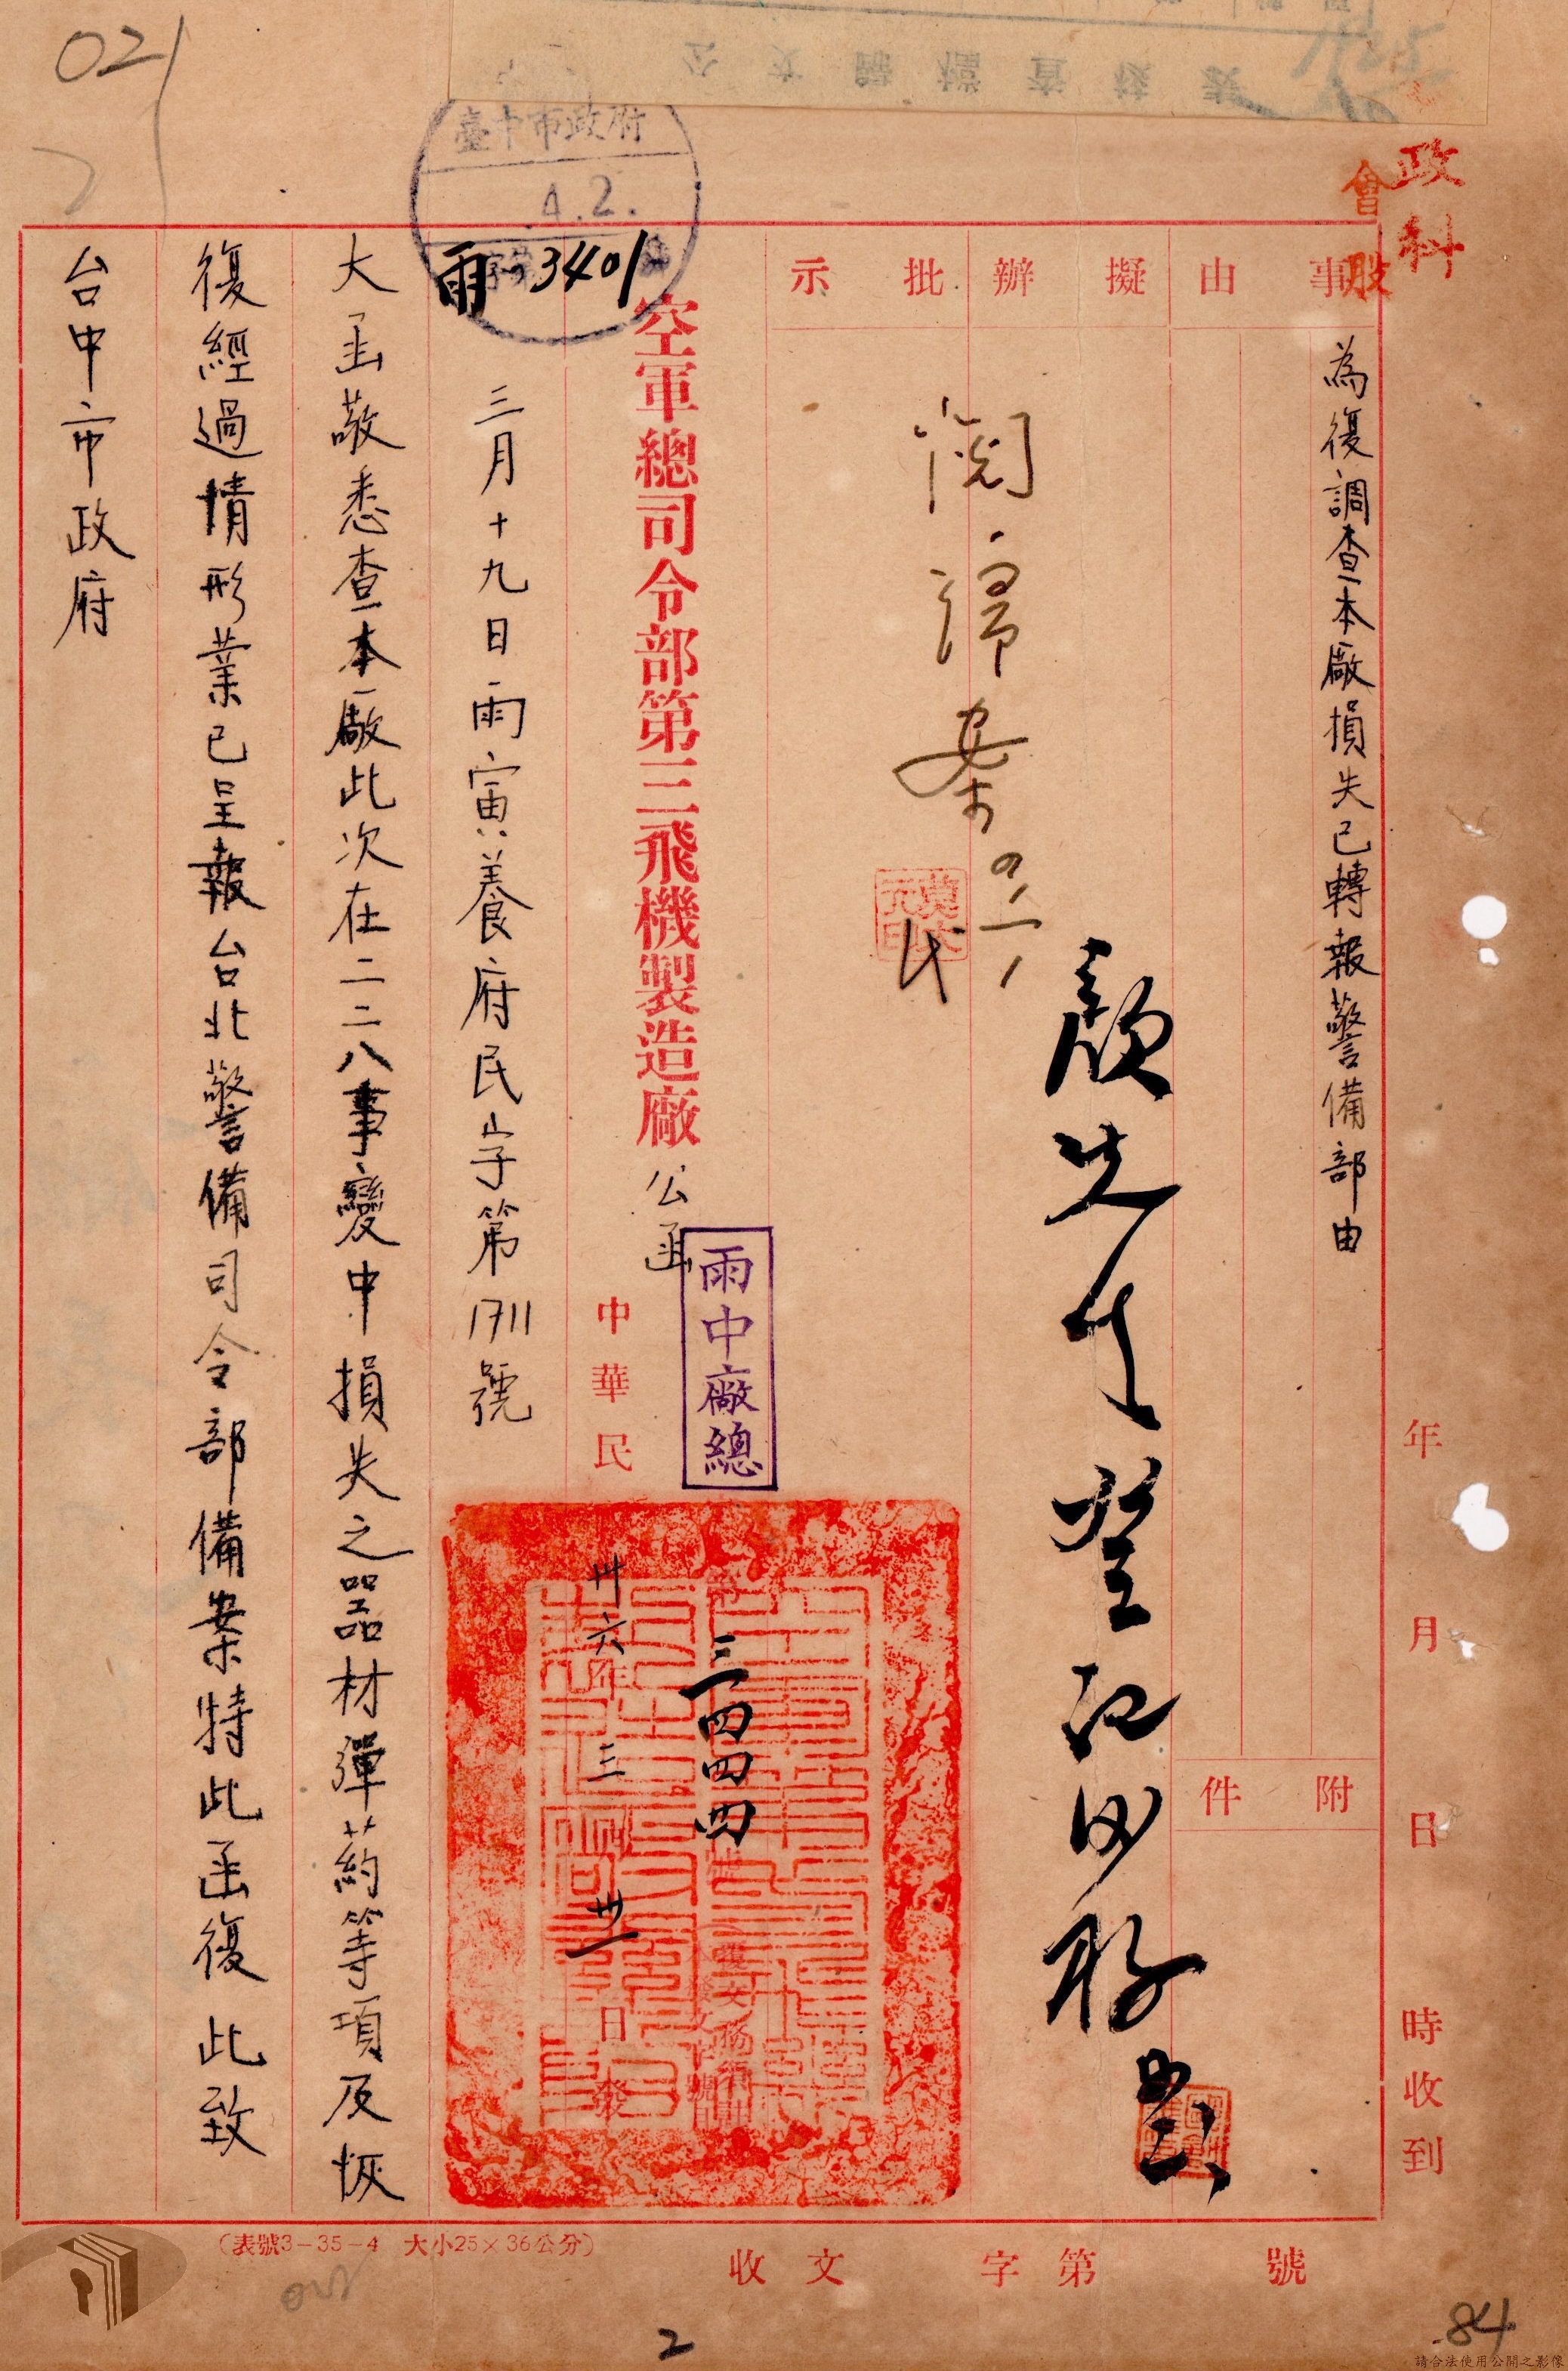 021
臺中市政府
4.2.
雨 3401
政
科
會
股
事由
為復調查本廠損失已轉報警備部由
附件
擬辦
批示
閱
歸案
空軍總司令部第三飛機製造廠 公函
雨中廠總
第三四四四號
中華民
卅六年三 卅一日發
三月十九日雨寅養府民字第1711號
大函敬悉查本廠此次在二二八事變中損失之器材彈葯等項及恢
復經過情形業已呈報台北警備司令部備案特此函復 此致
台中市政府
年月日時收到
(表號3-35-4 大小25×36公分)
收文 字第 號
2
84
請合法使用公開之影像